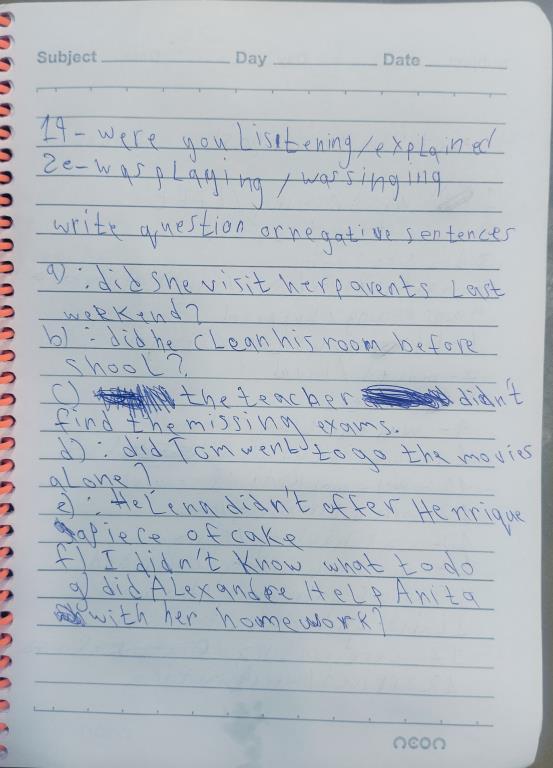 Subject Day Date
19- were you Lisitening/explained
2e- was pLaying / wassinging
write question or negative sentences
a): did she visit her parents Last
weekend?
b): did he cLean his room before
shool?
c) the teacher didn't
find the missing exams.
d): did Tom went to go the movies
aLone?
e): HeLena didn't offer Henrique
apiece of cake
f) I didn't know what to do
g) did ALexandre HeLp Anita
with her homework?
neon